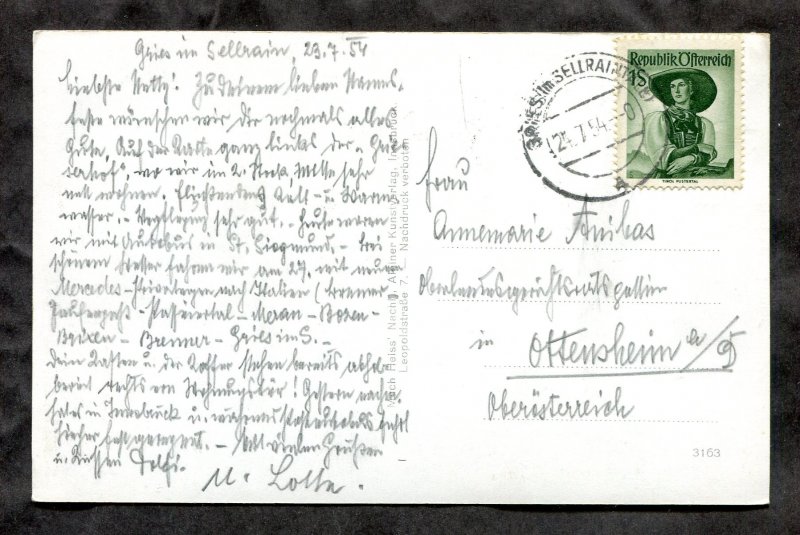 Gries im Sellrain, 23.7.54
Liebste Netty! Zu Deinem lieben Namens-
feste wünschen wir Dir nochmals alles
Gute. Auf der Karte ganz links der "Grie-
serhof", wo wir im 2. Stock, Mitte sehr
nett wohnen. Fließendes Kalt- u Warm-
wasser. - Verpflegung sehr gut. - Heute waren
wir mit Autobus in St. Siegmund. - Bei
schönem Wetter fahren wir am 27. mit
Mercedes- nach Italien (Brenner
Jaufenpaß - Passeiertal - Meran - Bozen -
Brixen - Brenner - Gries im S. -
Dein Kasten u. der Koffer stehen bereits abhol-
bereit rechts von Wohnungstür! Gestern
in Innsbruck u. während
geregnet. - Mit vielen Grüßen
u. Küssen Dolfi.
u. Lotte.
GRIES IM SELLRAIN
24.7.54
Republik Österreich
1S
TIROL PUSTERTAL
Frau
Annemarie Anibas
Oberlandesgerichtsratsgattin
in Ottensheim a/D
Oberösterreich
3163
Much Heiss' Nachf., Alpiner Kunstverlag, Innsbruck
Leopoldstraße 7. - Nachdruck verboten